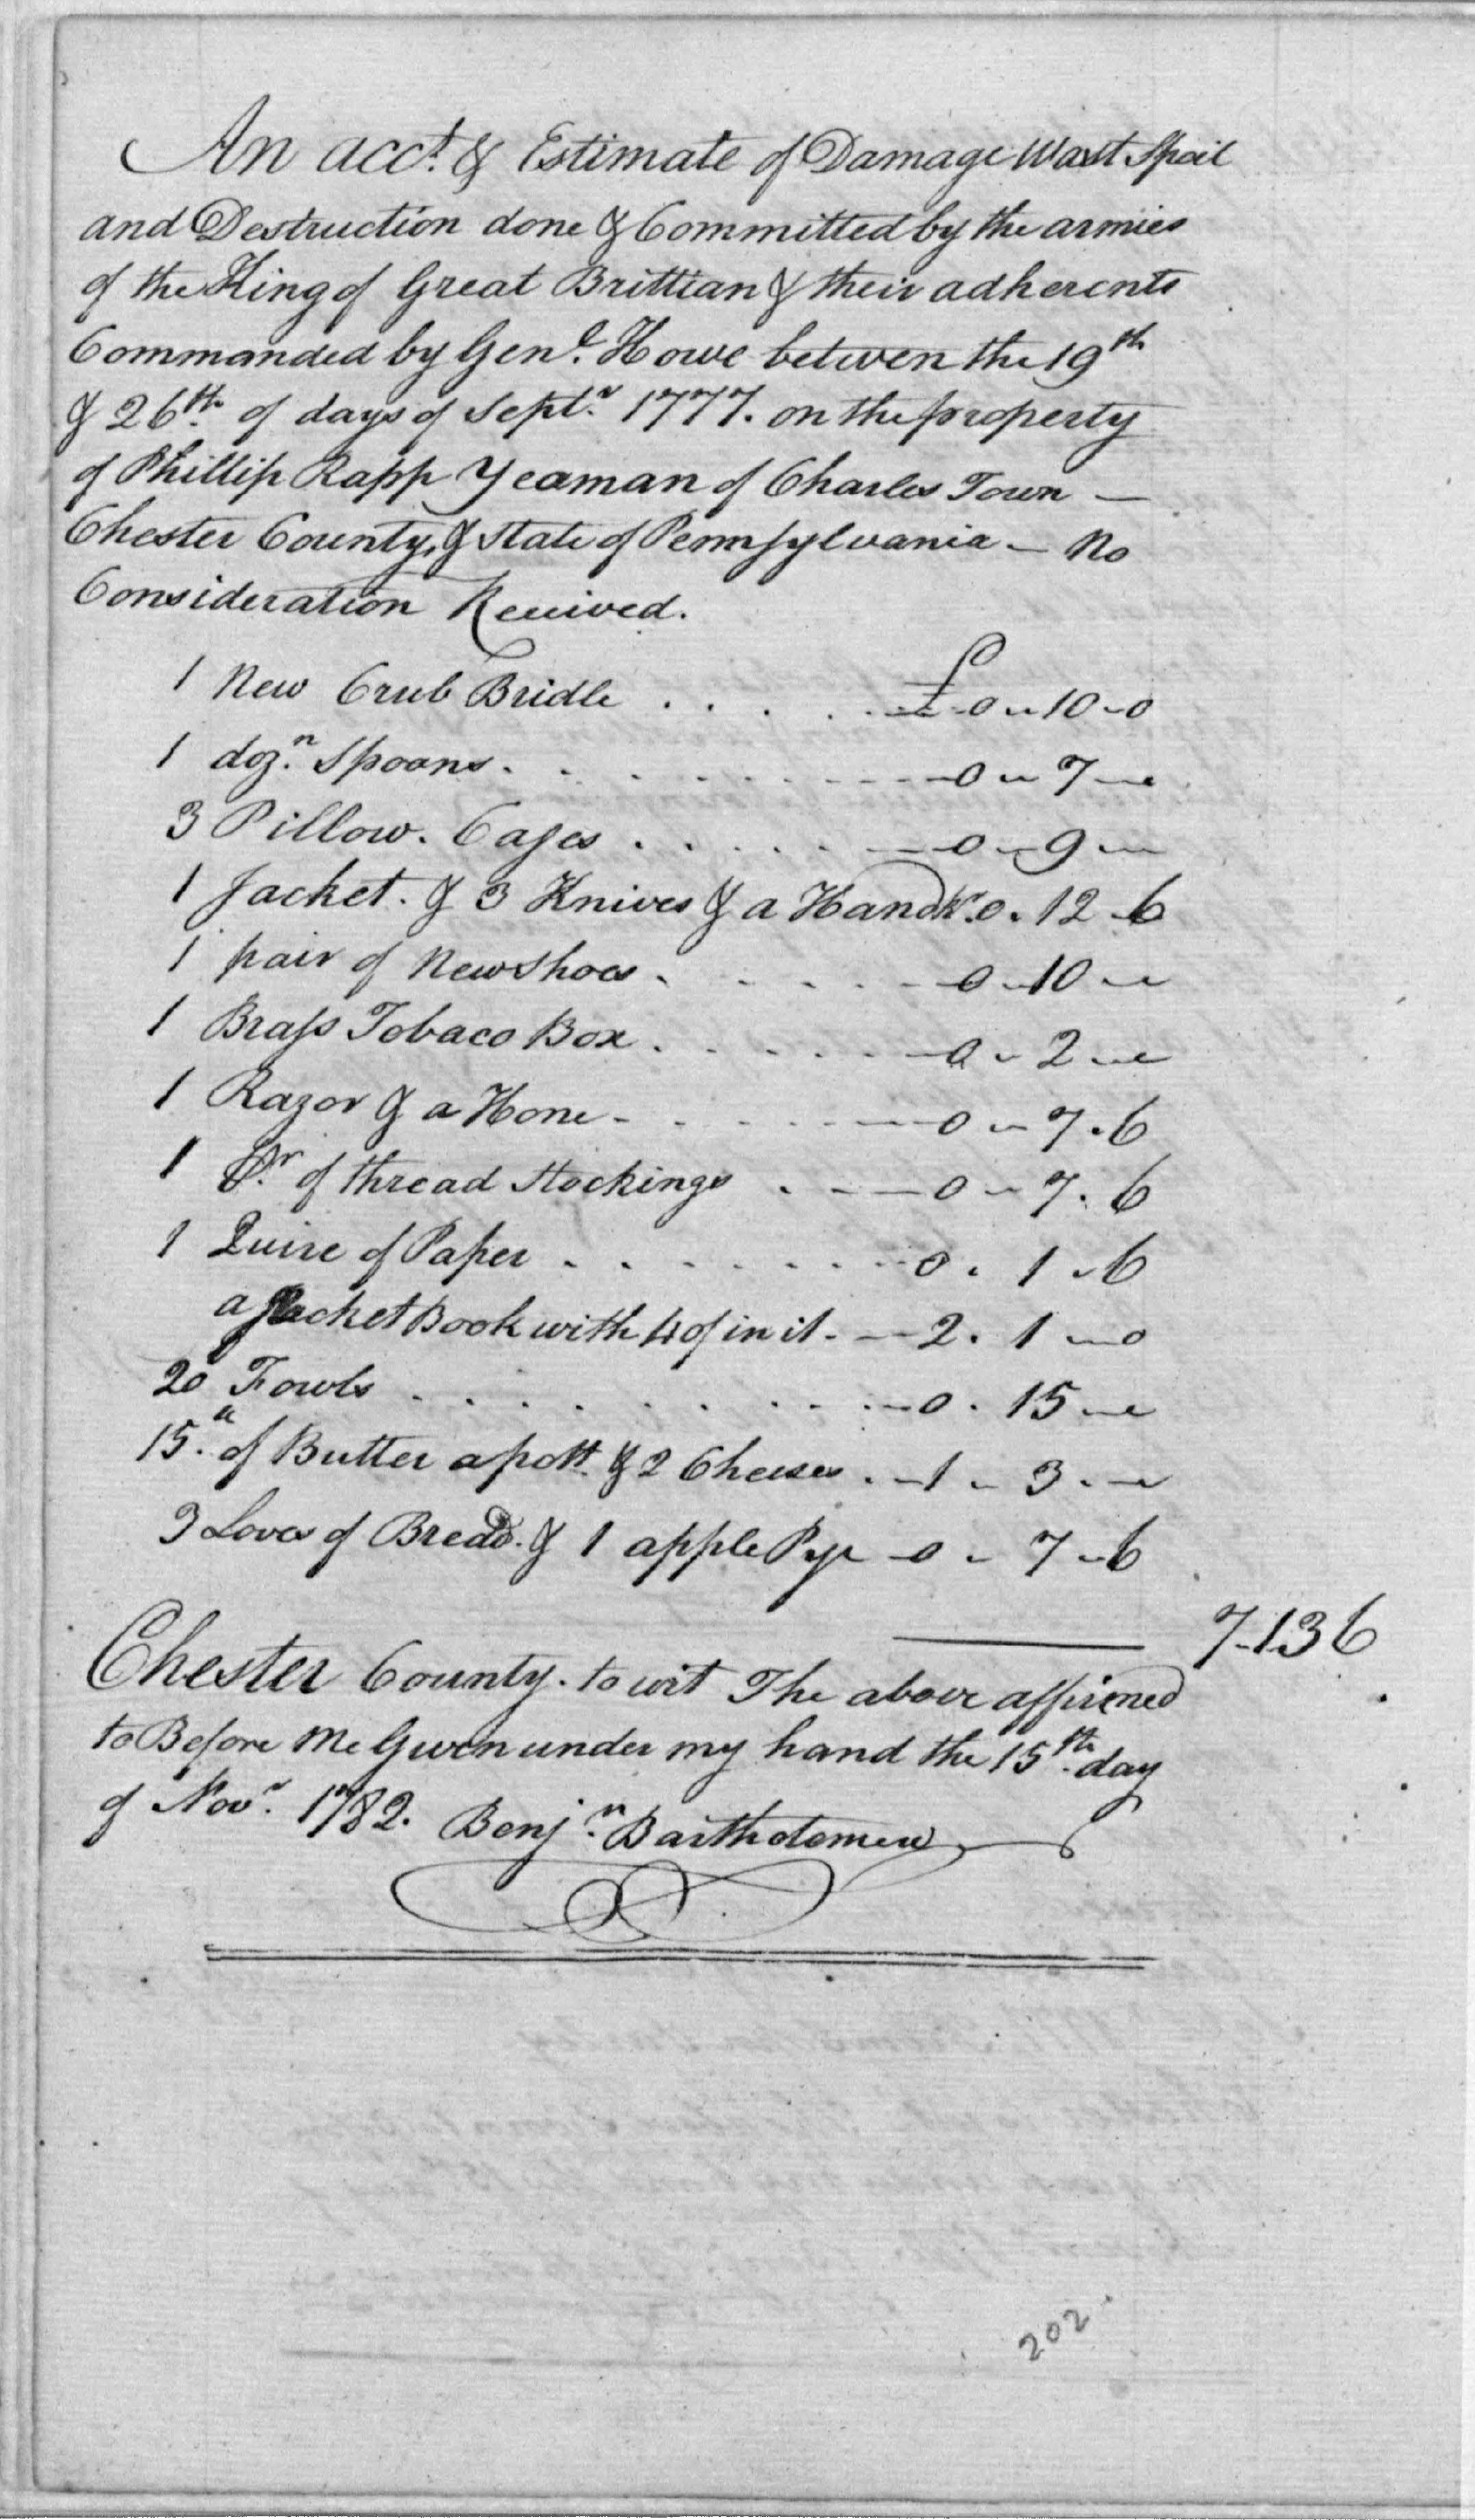 An acct. & Estimate of Damage Wast Spoil
and Destruction done & Committed by the armies
of the King of Great Brittian & their adherents
Commanded by Genl. Howe betwen the 19th
& 26th. of days of Septr. 1777. on the property
of Phillip Rapp Yeaman of Charles Town —
Chester County, & State of Pennsylvania — No
Consideration Received.
1 New Crub Bridle . . . . . £ 0 - 10 - 0
1 dozn. Spoons . . . . . . 0 - 7 -
3 Pillow. Cases . . . . . 0 - 9 -
1 Jacket. & 3 Knives & a Handkf. 0. 12 - 6
1 pair of New Shoes . . . . . 0 - 10 -
1 Brass Tobaco Box . . . . . 0 - 2 -
1 Razor & a Hone - . . . . 0 - 7. 6
1 Pr. of thread Stockings . . — 0 - 7. 6
1 Quire of Paper . . . . . . 0. 1 - 6
a Pocket Book with 40/ in it - — 2. 1 - 0
20 Fowls . . . . . . . 0. 15 -
15.lb of Butter a pott & 2 Cheeses . - 1 - 3. -
3 Loves of Bread. & 1 apple Pye - 0 - 7 - 6
7-13 6
Chester County. to wit The above affirmed
to Before Me Given under my hand the 15th. day
of Novr. 1782. Benjn. Bartholomew
202.